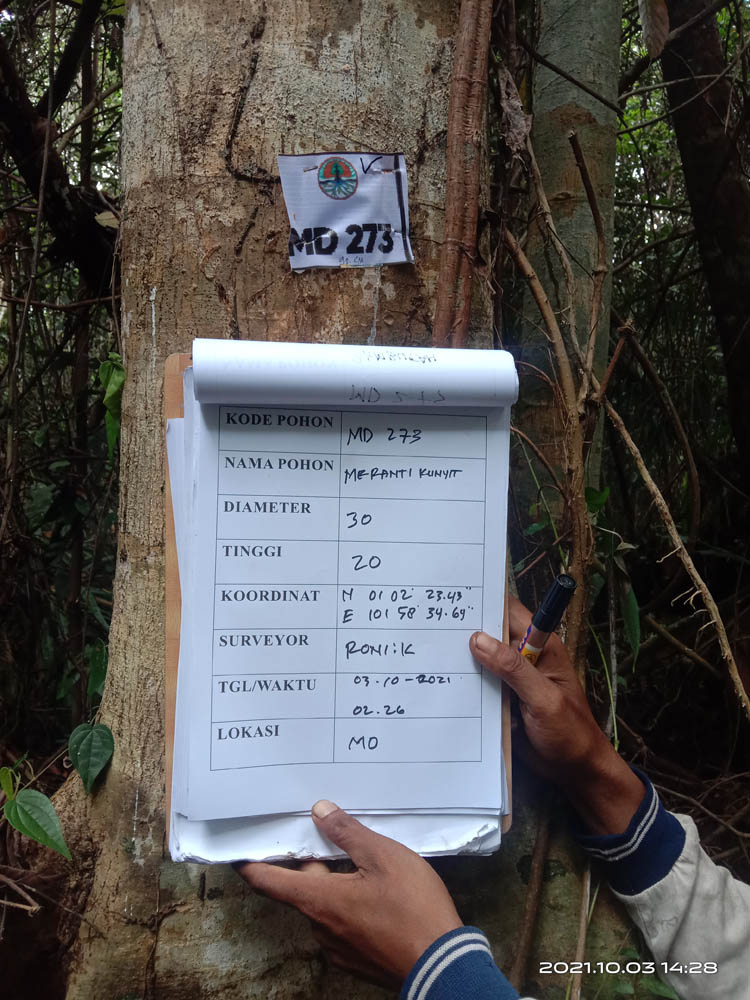 MD 273
KODE POHON MD 273
NAMA POHON MERANTI KUNYIT
DIAMETER 30
TINGGI 20
KOORDINAT N 01 02' 23.43"
E 101 58' 34.69"
SURVEYOR RONI:K
TGL/WAKTU 03-10-2021
02.26
LOKASI MD
2021.10.03 14:28